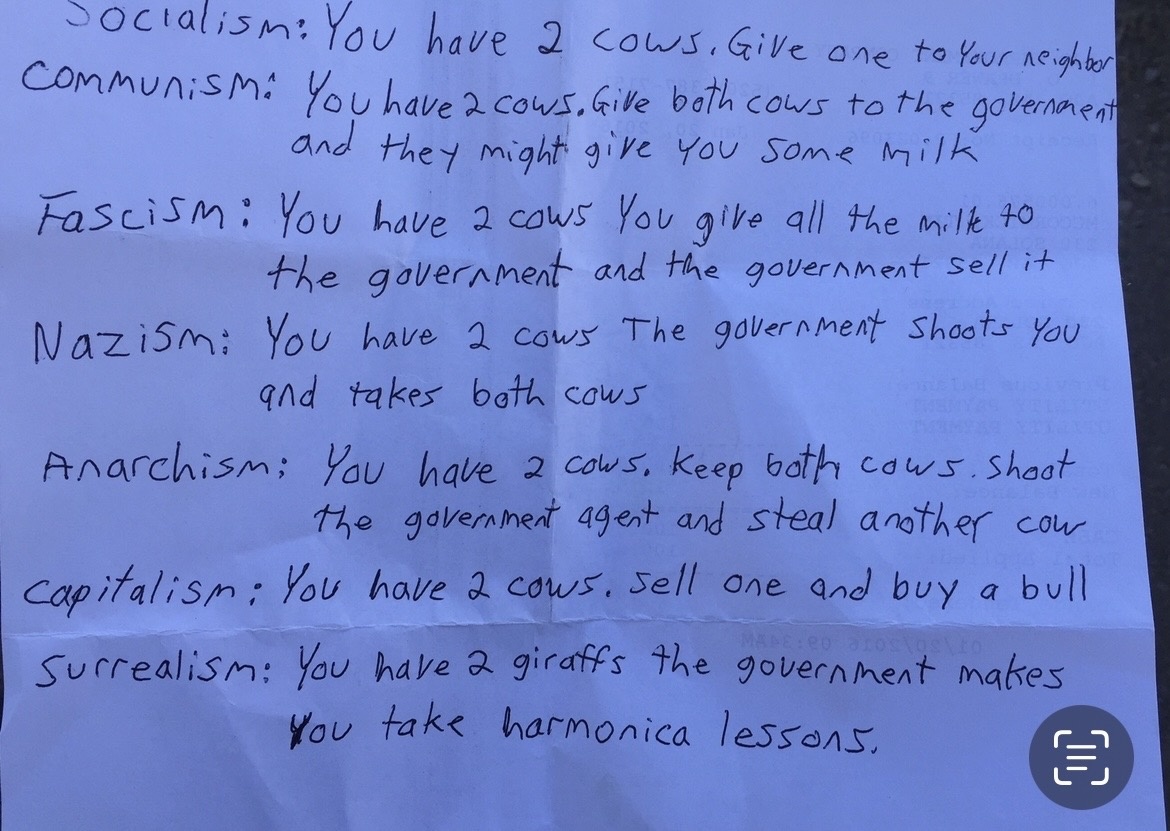 Socialism: You have 2 cows. Give one to Your neighbor
Communism: You have 2 cows. Give both cows to the government
and they might give you some milk
Fascism: You have 2 cows You give all the milk to
the government and the government sell it
Nazism: You have 2 cows The government Shoots You
and takes both cows
Anarchism: You have 2 cows. Keep both cows. Shoot
the government agent and steal another cow
Capitalism: You have 2 cows. Sell one and buy a bull
Surrealism: You have 2 giraffs the government makes
You take harmonica lessons.
01/20/2016 09:34AM